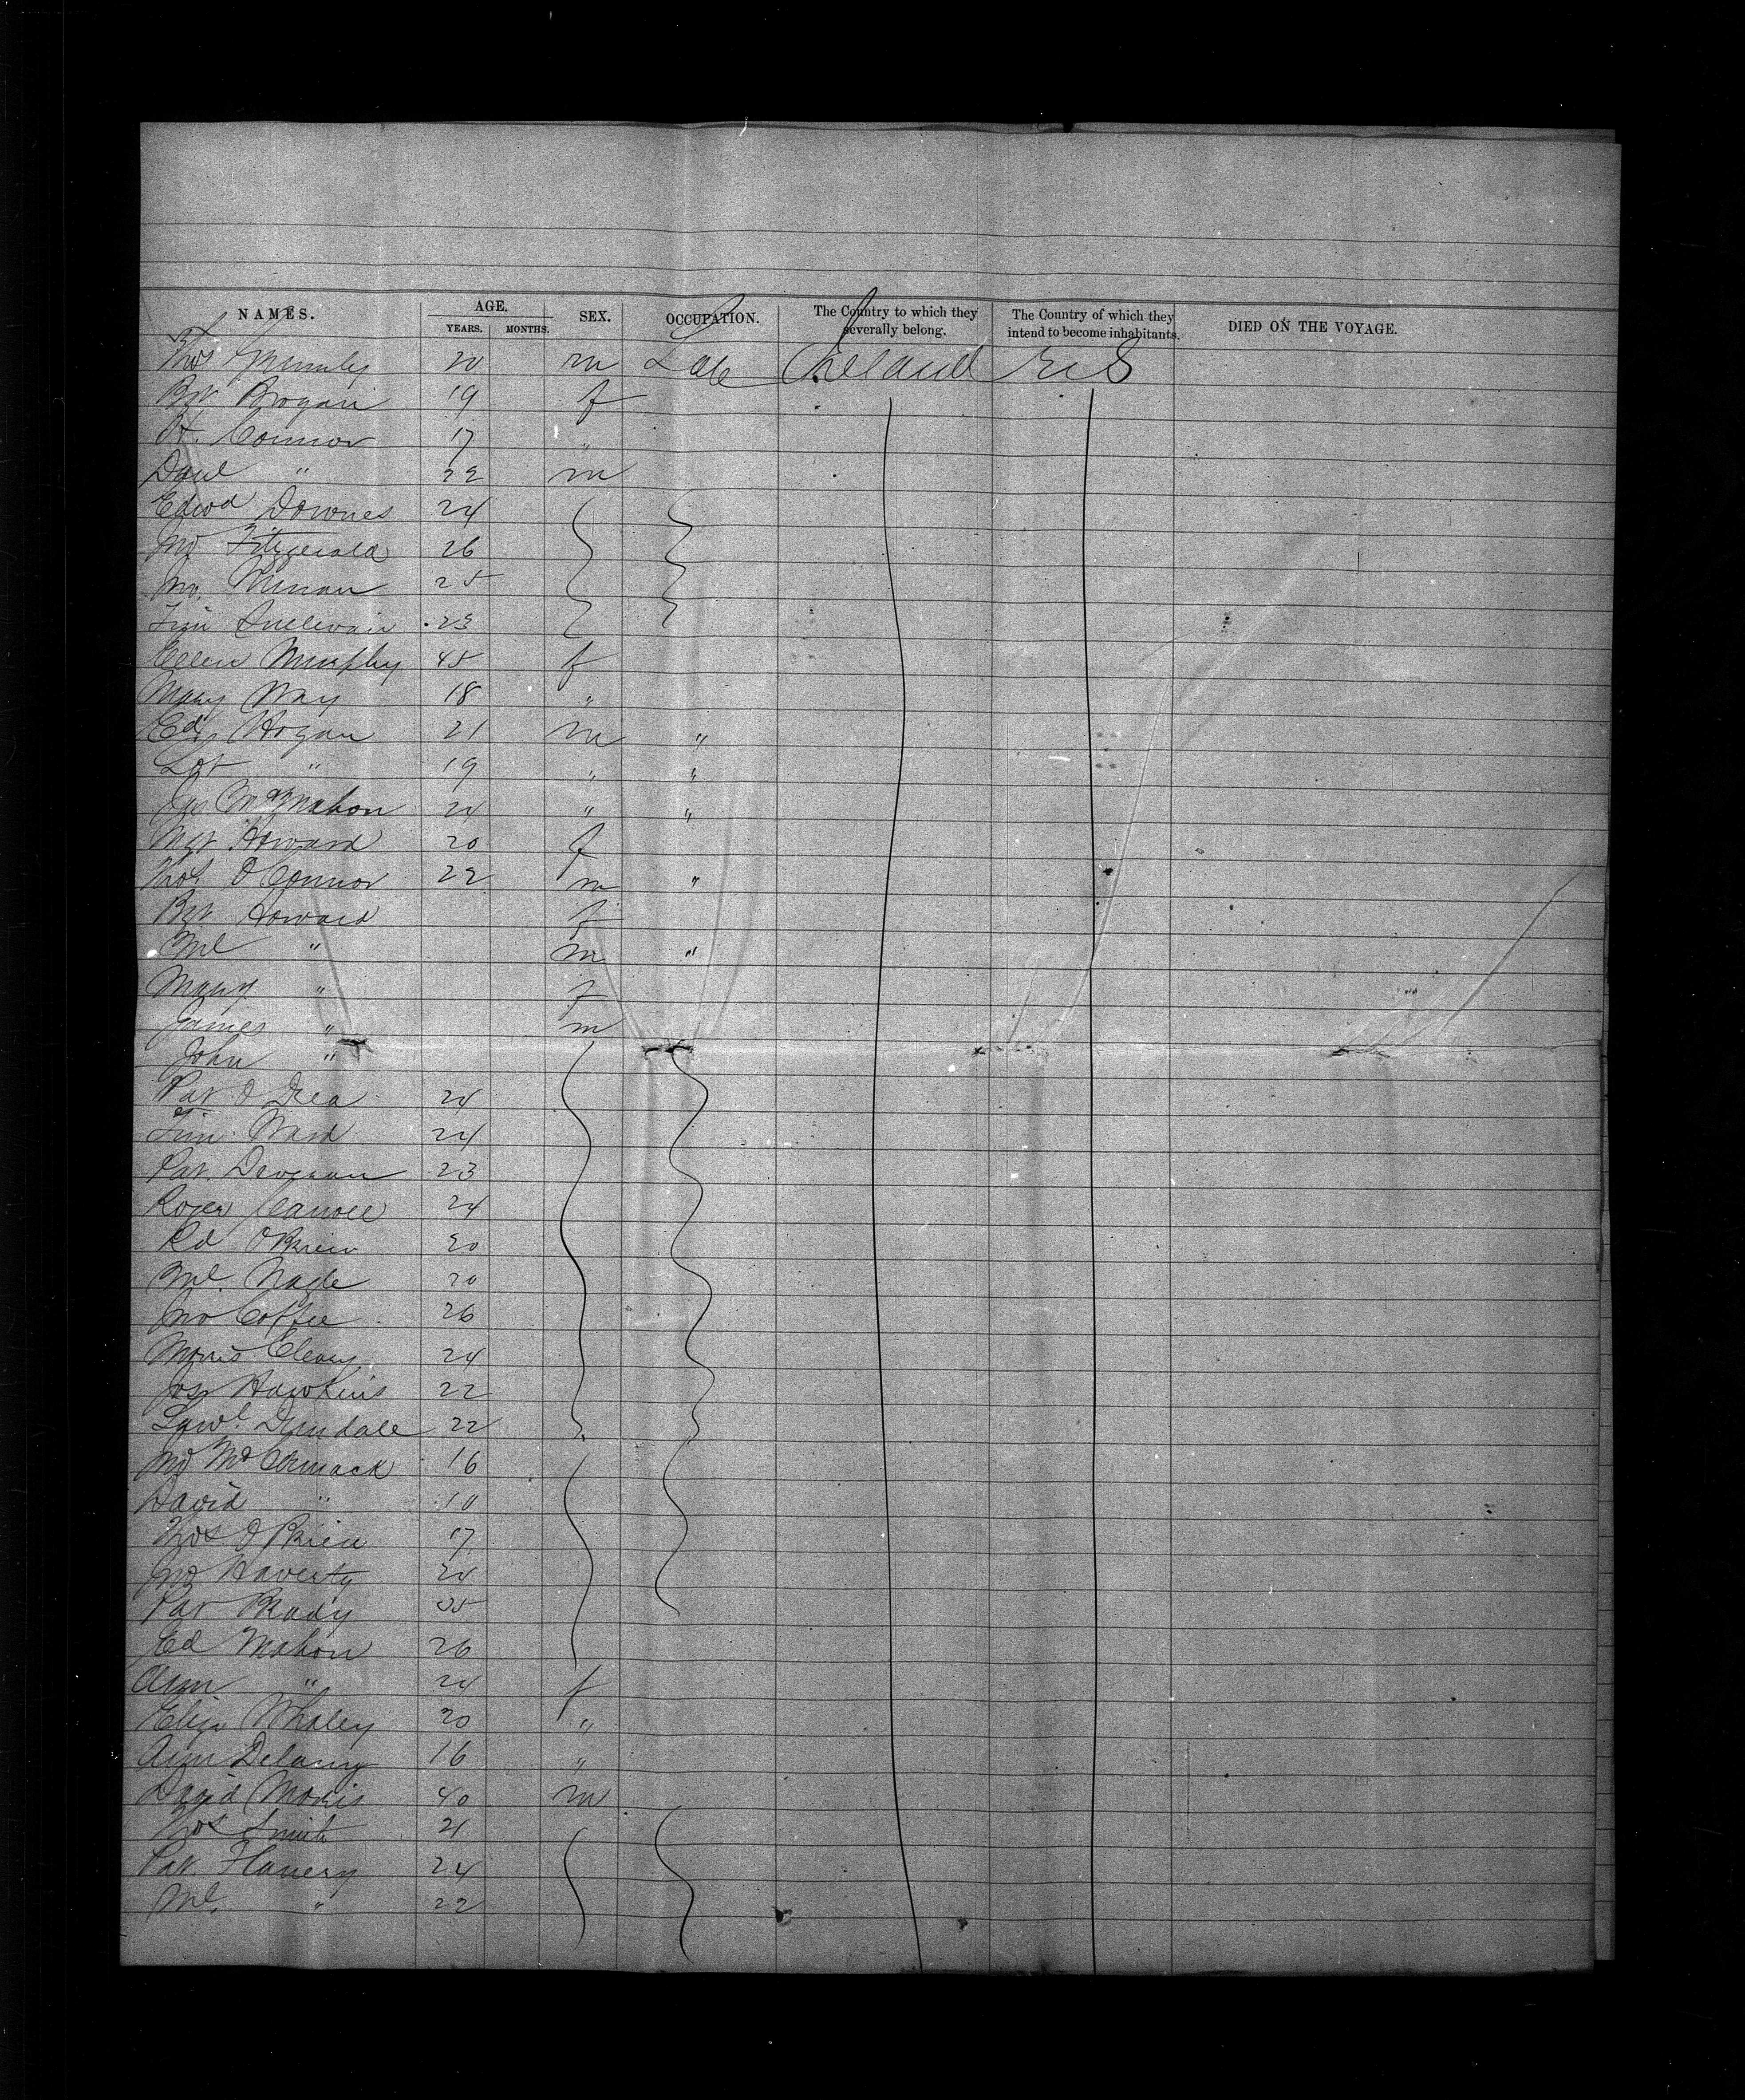 NAMES. AGE. SEX. OCCUPATION. The Country to which they severally belong. The Country of which they intend to become inhabitants. DIED ON THE VOYAGE.
YEARS. MONTHS.
Thos 20 m Lab Ireland U S
Bgt Brogan 19 f
Connor 17 "
Danl " 22 m
Edwd Downes 24
Jno Fitzgerald 26
Jno. 25
Tim Sullivan 23
Ellen Murphy 45 f
Mary 18 "
Ed. Hogan 21 m "
" 19 " "
Jas McMahon 24 " "
Mgt Howard 20 f
Thos O Connor 22 m "
Bgt Howard f
Ml " m "
Mary " f
James " m
John "
Pat O Dea 24
Tim Ward 24
Pat. 23
Roger Carroll 24
Rd O Brien 20
Ml Nagle 20
Jno Coffee 26
Morris Cleary 24
Jos Hawkins 22
22
Jno McCormack 16
David " 10
Thos O Brien 17
Jno Haverty 24
Pat Brady 35
Ed Mahon 26
Ann " 24 f
Eliza Whaley 20 "
Ann Delany 16 "
David Morris 40 m
Thos Smith 21
Pat. Flanery 24
Ml. " 22